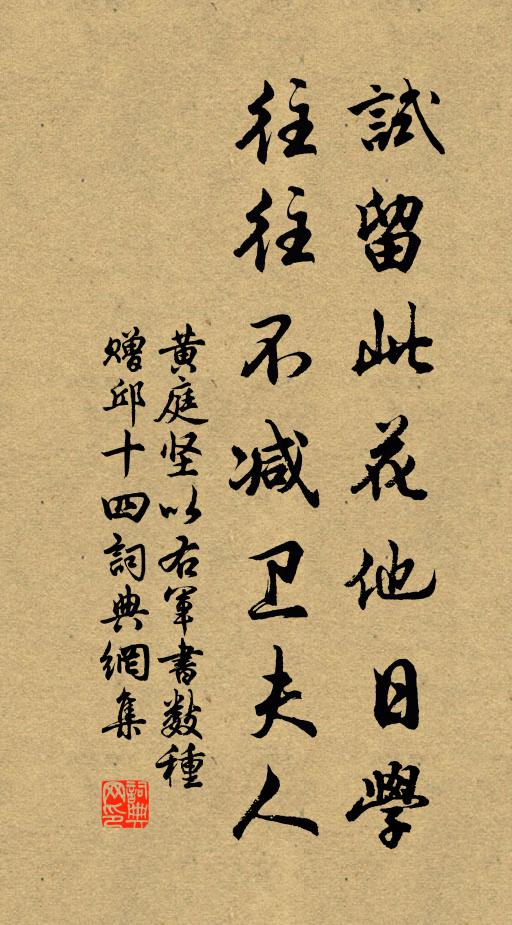 試留此花他日學
往往不减卫夫人
黄庭坚以右軍書数種
贈邱十四詞典網集
詞典網印